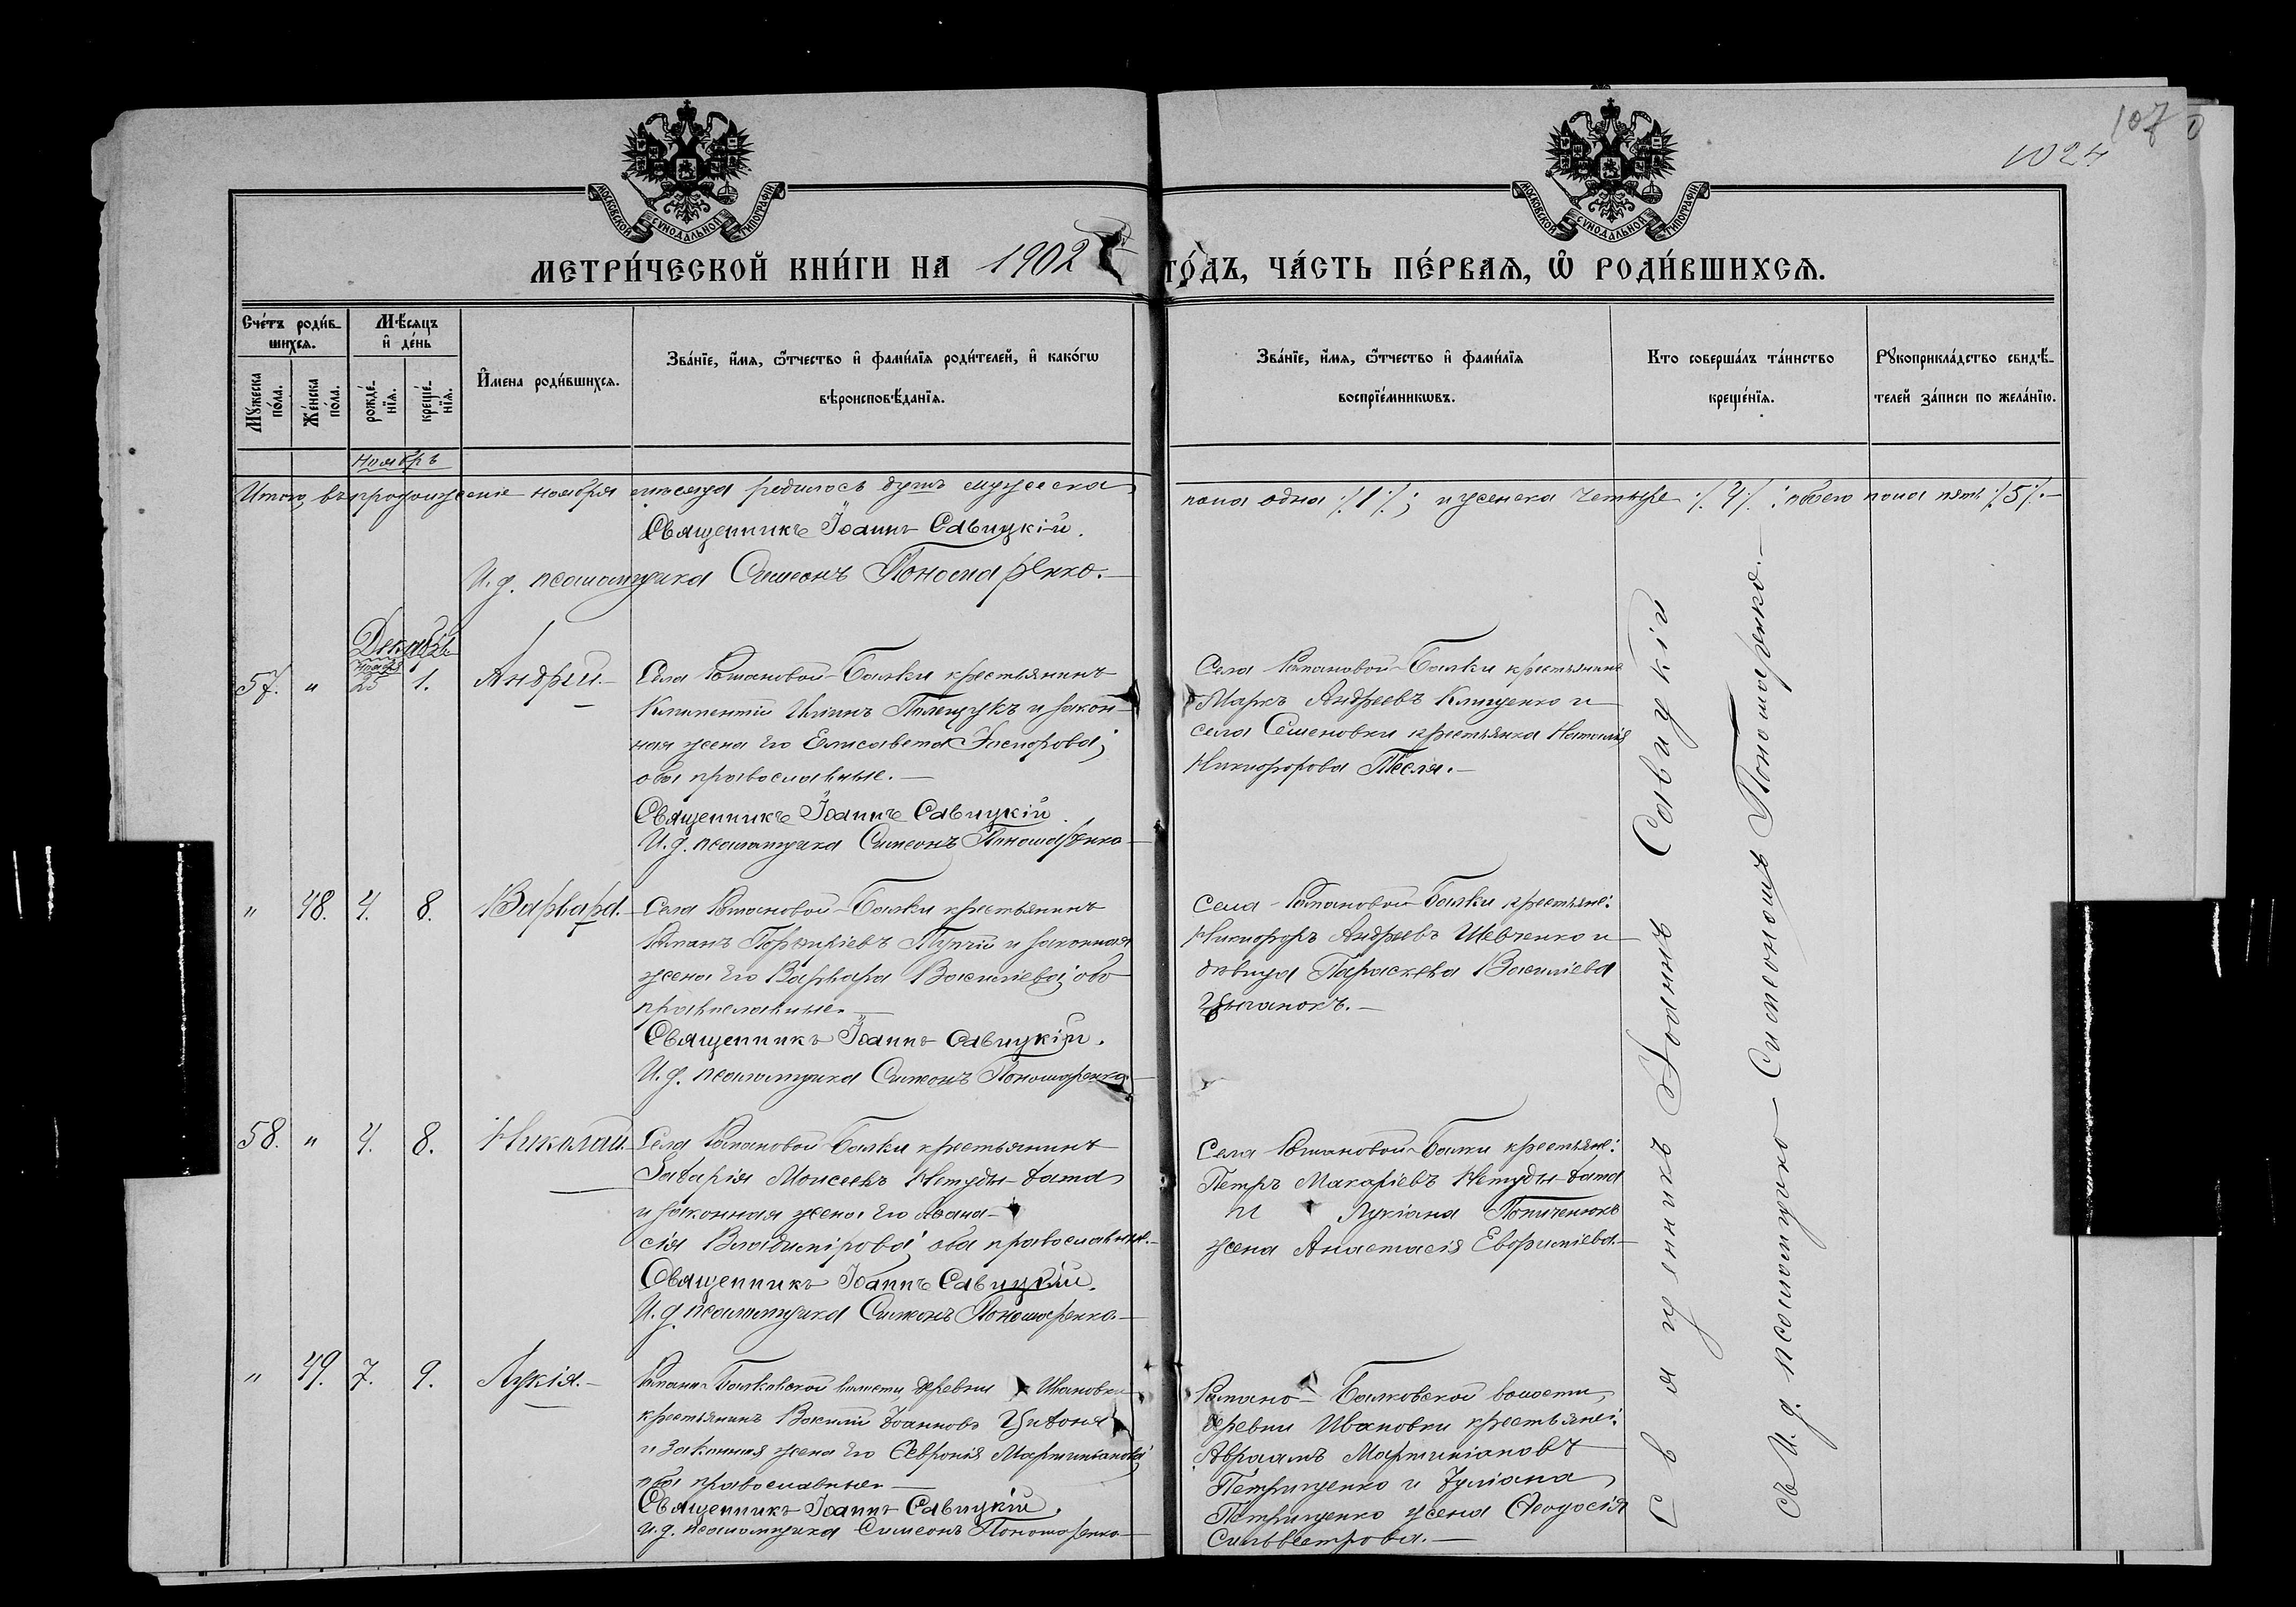 107
1024.
МОСКОВСКОЙ СѴНОДАЛЬНОЙ ТИПОГРАФІИ
МОСКОВСКОЙ СѴНОДАЛЬНОЙ ТИПОГРАФІИ
МЕТРИ́ЧЕСКОЙ КНИ́ГИ НА 1902 ГО́ДЪ, ЧА́СТЬ ПЕ́РВАѦ, Ѡ РОДИ́ВШИХСѦ.
Сче́тъ роди́в-
шихсѧ.
Мꙋ́жеска
по́ла.
Же́нска
по́ла.
Мѣ́сѧцъ
и҆ де́нь
рожде́-
нїѧ.
креще́-
нїѧ.
И҆мена роди́вшихсѧ.
Зва́нїе, и҆́мѧ, ѻ҆́тчество и҆ фами́лїѧ роди́телей, и҆ како́гѡ
вѣроисповѣ́данїѧ.
Зва́нїе, и҆́мѧ, ѻ҆́тчество и҆ фами́лїѧ
воспрїе́мникѡвъ.
Кто соверша́лъ та́инство
креще́нїѧ.
Рꙋкоприкла́дство свидѣ́-
телей за́писи по жела́нїю.
Ноябрь
Итого, въ продолженіе ноября мѣсяца родилось душъ мужеска
пола одна ·/.1·/.; и женска четыре ·/.4·/.: обоего пола пять ·/.5·/.—
Священникъ Іоаннъ Савицкій.
И. д. псаломщика Симеонъ Пономаренко.—
Декабрь
57. „ ноября 25 1. Андрей.—
Села Романовой-Балки крестьянинъ
Климентій Ильинъ Полещукъ и закон-
ная жена его Елисавета Захарова;
оба православные.—
Священникъ Іоаннъ Савицкій.
И. д. псаломщика Симеонъ Пономаренко—
Села Романовой-Балки крестьянинъ
Маркъ Андреевъ Клищенко и
села Семеновки крестьянка Наталія
Никифорова Тесля.—
„ 48. 4. 8. Варвара.—
Села Романовой-Балки крестьянинъ
Романъ Порфиріевъ и законная
жена его Варвара Василіева; оба
православные.—
Священникъ Іоаннъ Савицкій.
И. д. псаломщика Симеонъ Пономаренко—
Села Романовой-Балки крестьяне:
Никифоръ Андреевъ Шевченко и
дѣвица Параскева Василіева
Цыганокъ.—
58. „ 4. 8. Николай.—
Села Романовой-Балки крестьянинъ
Захарія Моисеевъ Нетуды-хата
и законная жена его Аѳана-
сія Владимірова; оба православные.—
Священникъ Іоаннъ Савицкій.
И. д. псаломщика Симеонъ Пономаренко.—
Села Романовой-Балки крестьяне:
Петръ Макаріевъ Нетуды-хата
и Лукіана Попиченюка
жена Анастасія Евфиміева.—
„ 49. 7. 9. Лукія.—
Романо-Балковской волости, деревни Ивановки
крестьянинъ Василій Іоанновъ
и законная жена его Февронія Мартиніанова;
оба православные.—
Священникъ Іоаннъ Савицкій.
И. д. псаломщика Симеонъ Пономаренко—
Романо-Балковской волости,
деревни Ивановки крестьяне:
Авраамъ Мартиніановъ
Петрищенко и Іуліана
Петрищенко жена Ѳеодосія
Сильвестрова.—
Священникъ Іоаннъ Савицкій
съ И. д. псаломщика Симеономъ Пономаренко.—